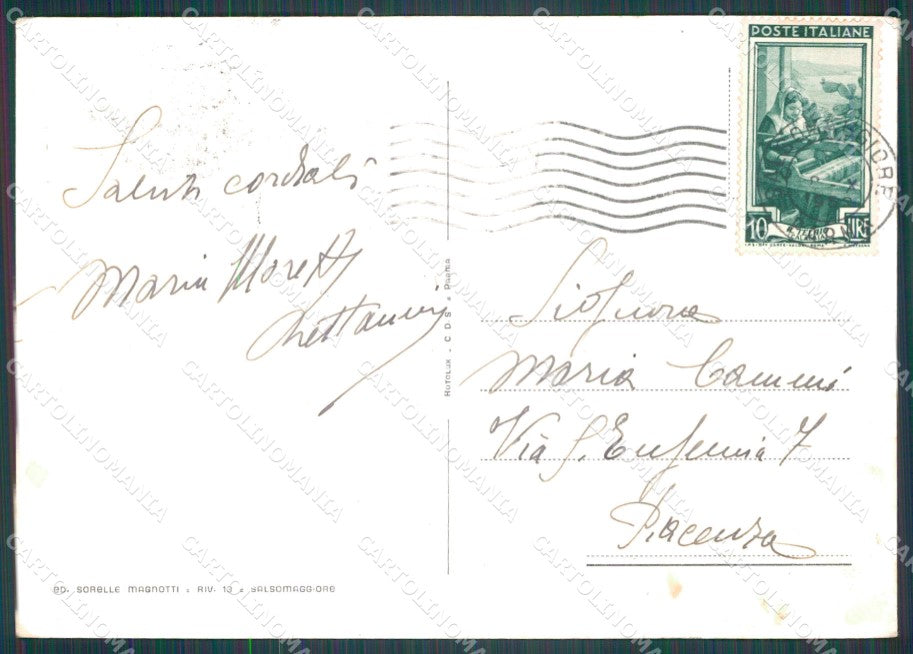 Saluti cordiali
Maria Moretti
ROTOLUX - C D S - PARMA
POSTE ITALIANE
10 LIRE
Signora
Maria Cammi
Via S. Eufemia 7
Piacenza
ED. SORELLE MAGNOTTI - RIV. 13 - SALSOMAGGIORE
CARTOLINOMANIA